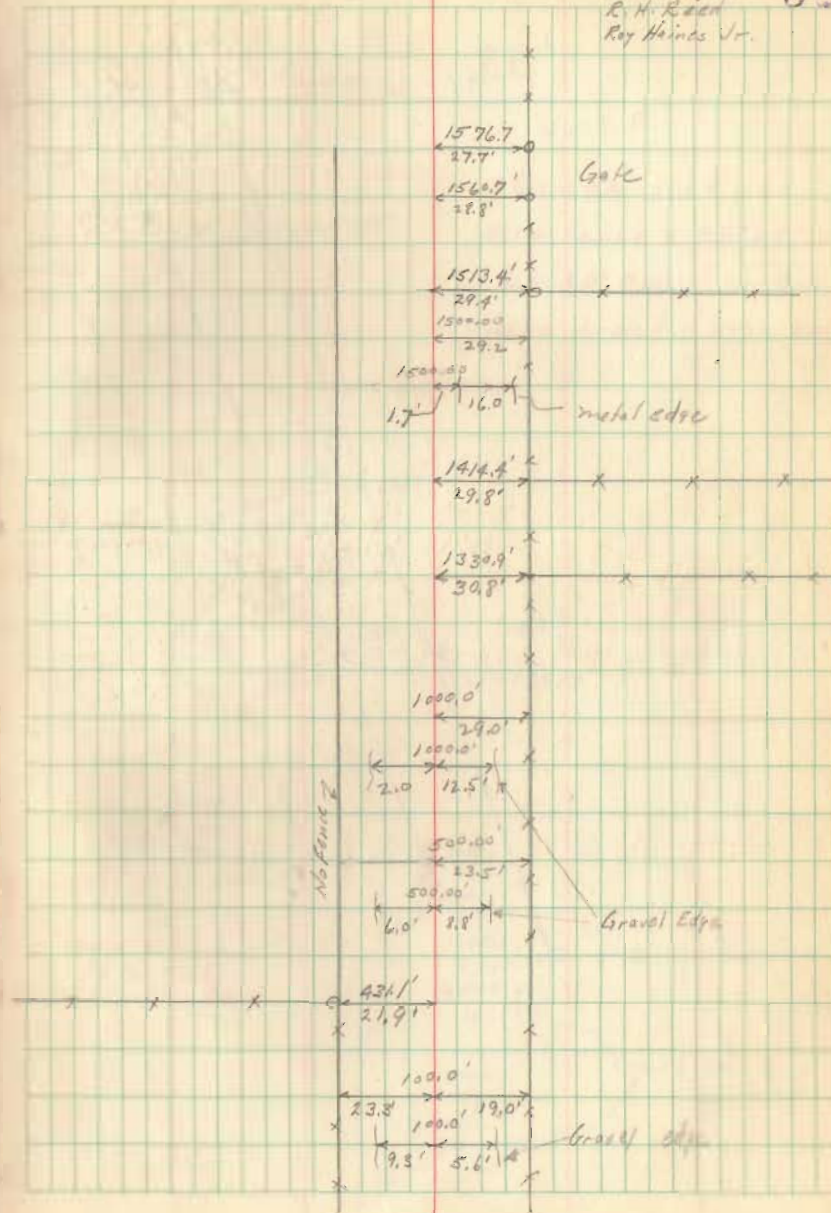 R. H. Reed
Roy Haines Jr.
1576.7
27.7'
Gate
1560.7'
28.8'
1513.4'
29.4'
1500.00
29.2
1500.00
1.7' 16.0 metal edge
1414.4'
29.8'
1330.9'
30.8'
1000.0'
29.0'
1000.0'
2.0 12.5'
No Fence
500.00'
23.5'
500.00'
6.0' 8.8' Gravel Edge
431.1'
21.9'
100.0'
23.8' 19.0'
100.0'
9.3' 5.6' Gravel edge